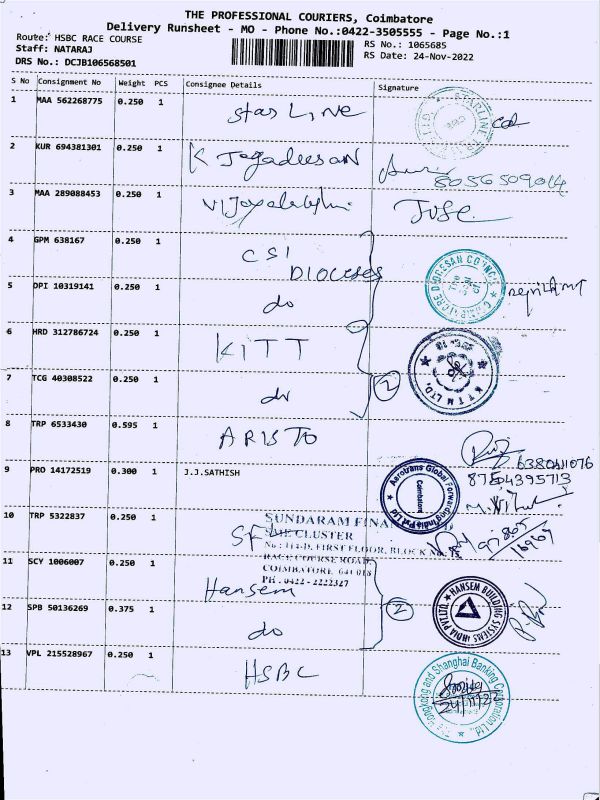 THE PROFESSIONAL COURIERS, Coimbatore
Delivery Runsheet - MO - Phone No.:0422-3505555 - Page No.:1
Route: HSBC RACE COURSE
RS No.: 1065685
Staff: NATARAJ
RS Date: 24-Nov-2022
DRS No.: DCJB106568501
S No Consignment No Weight PCS Consignee Details Signature
1 MAA 562268775 0.250 1 Star Line
2 KUR 694381301 0.250 1 K Jagadeesan
8056509014
3 MAA 289088453 0.250 1 Vijayalakshmi
4 GPM 638167 0.250 1 CSI
DIOCESES
5 DPI 10319141 0.250 1 do
6 HRD 312786724 0.250 1 KITT
7 TCG 40308522 0.250 1 do
2
8 TRP 6533430 0.595 1 ARISTO
6380411076
9 PRO 14172519 0.300 1 J.J.SATHISH
Aerotrans Global Forwarding India Pvt Ltd
Coimbatore
10 TRP 5322837 0.250 1
SUNDARAM
CLUSTER
FIRST FLOOR, BLOCK
11 SCY 1006007 0.250 1
RACE COURSE ROAD
COIMBATORE 641 018
PH : 0422 - 2222327
Hansem
HANSEM BUILDING SYSTEMS INDIA PVT LTD
2
12 SPB 50136269 0.375 1 do
13 VPL 215528967 0.250 1 HSBC
The Hongkong and Shanghai Banking Corporation Ltd.
24/11/22